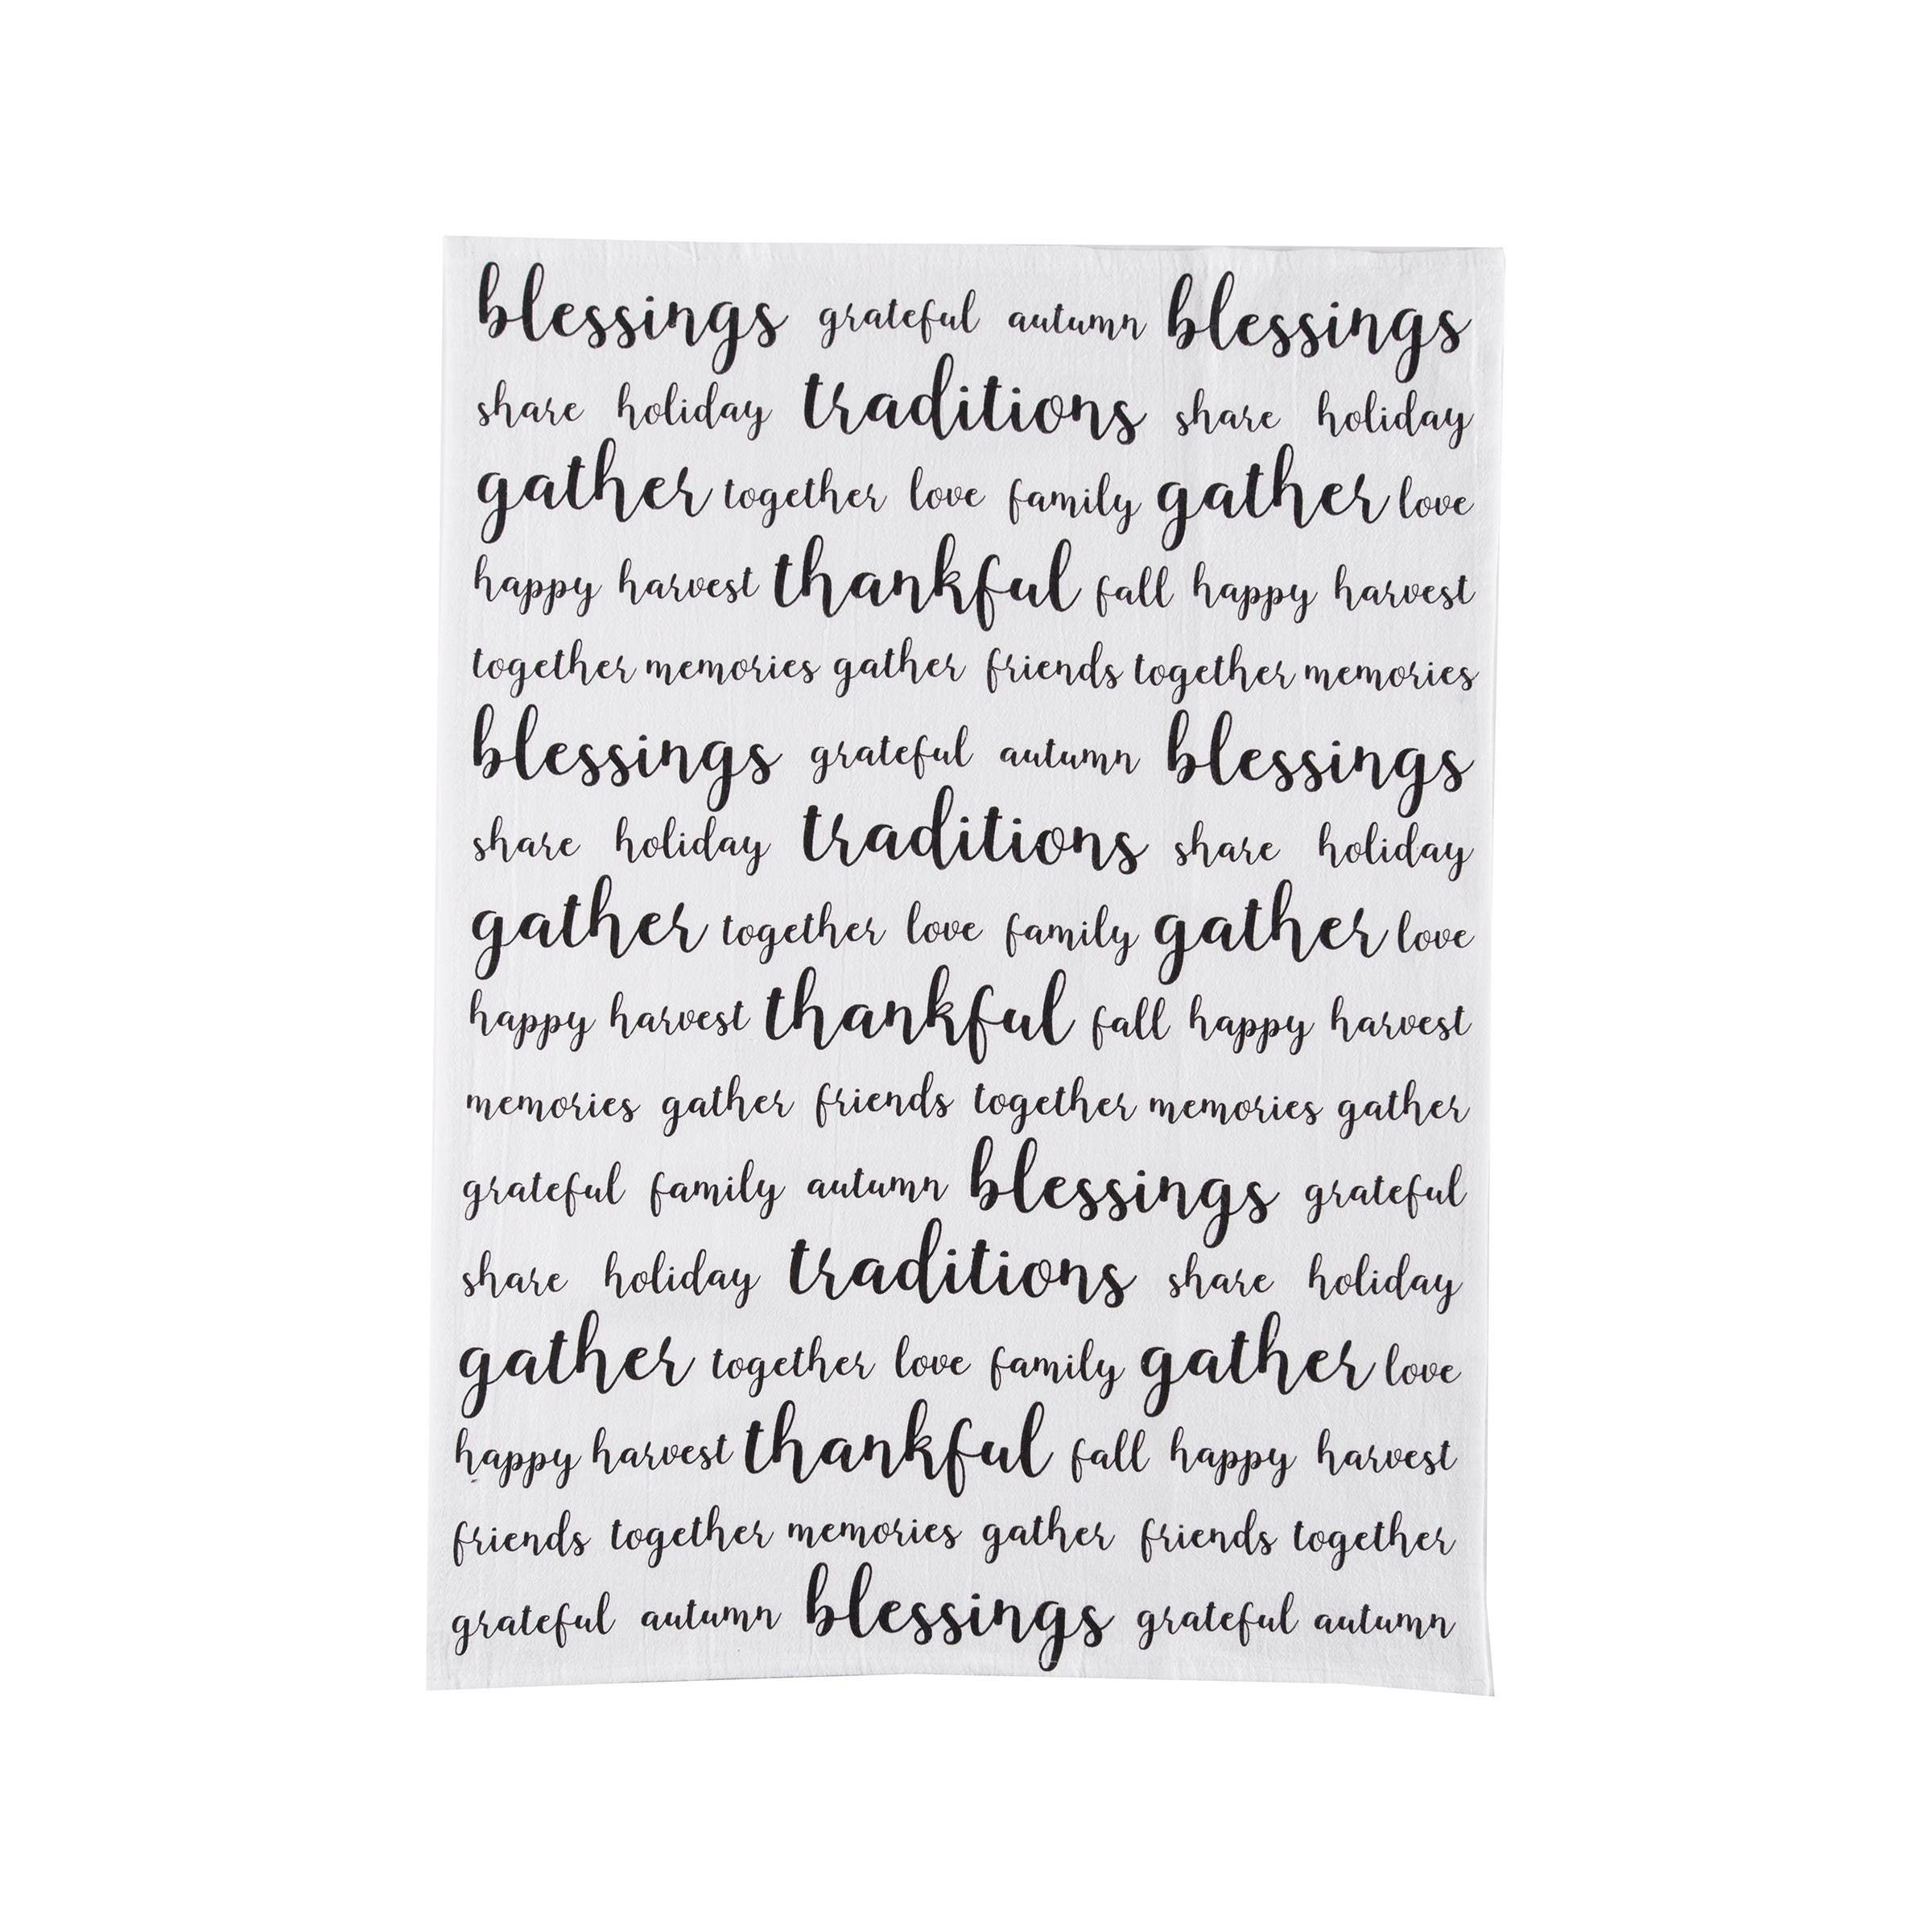 blessings grateful autumn blessings
share holiday traditions share holiday
gather together love family gather love
happy harvest thankful fall happy harvest
together memories gather friends together memories
blessings grateful autumn blessings
share holiday traditions share holiday
gather together love family gather love
happy harvest thankful fall happy harvest
memories gather friends together memories gather
grateful family autumn blessings grateful
share holiday traditions share holiday
gather together love family gather love
happy harvest thankful fall happy harvest
friends together memories gather friends together
grateful autumn blessings grateful autumn